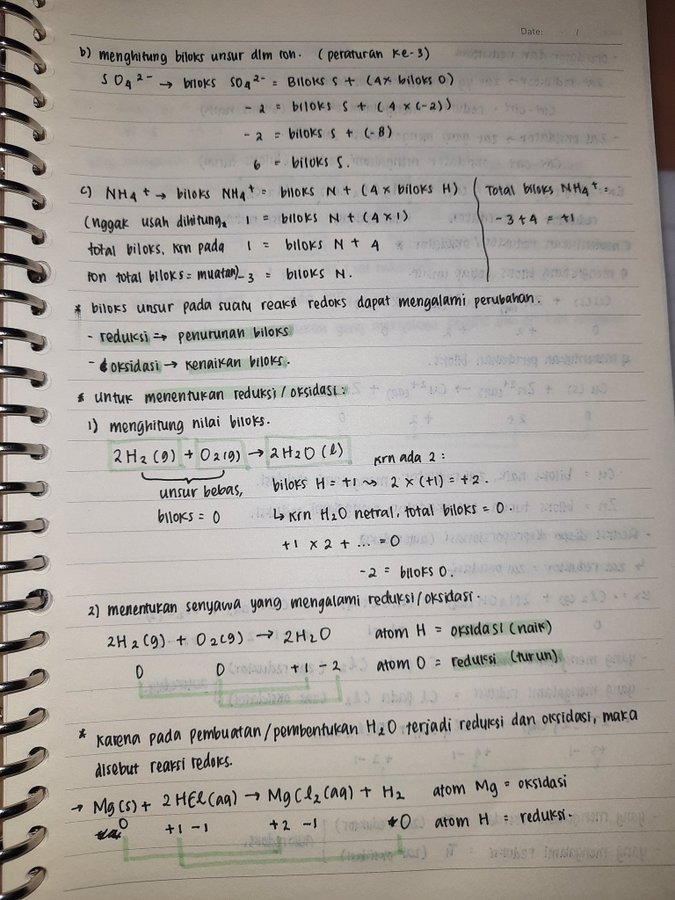 Date: /
b) menghitung biloks unsur dlm ion. (peraturan ke-3)
SO4 2- → biloks SO4 2- = Biloks S + (4x biloks O)
-2 = biloks S + (4 x (-2))
-2 = biloks S + (-8)
6 = biloks S.
c) NH4 + → biloks NH4+ = biloks N + (4 x biloks H)
Total biloks NH4+ =
(nggak usah dihitung, 1 = biloks N + (4x1)
-3+4 = +1
total biloks, krn pada 1 = biloks N + 4
ion total biloks = muatan) -3 = biloks N.
* biloks unsur pada suatu reaksi redoks dapat mengalami perubahan.
- reduksi => penurunan biloks
- oksidasi → kenaikan biloks.
* untuk menentukan reduksi/oksidasi:
1) menghitung nilai biloks.
2H2(g) + O2(g) → 2H2O(l)
krn ada 2:
unsur bebas,
biloks H = +1 ~> 2 x (+1) = +2.
biloks = 0
↳ krn H2O netral, total biloks = 0.
+1 x 2 + ... = 0
-2 = biloks O.
2) menentukan senyawa yang mengalami reduksi/oksidasi.
2H2(g) + O2(g) → 2H2O atom H = oksidasi (naik)
0 0 +1 -2 atom O = reduksi (turun)
* karena pada pembuatan/pembentukan H2O terjadi reduksi dan oksidasi, maka
disebut reaksi redoks.
→ Mg(s) + 2HCl(aq) → MgCl2(aq) + H2 atom Mg = oksidasi
0 +1 -1 +2 -1 0 atom H = reduksi.